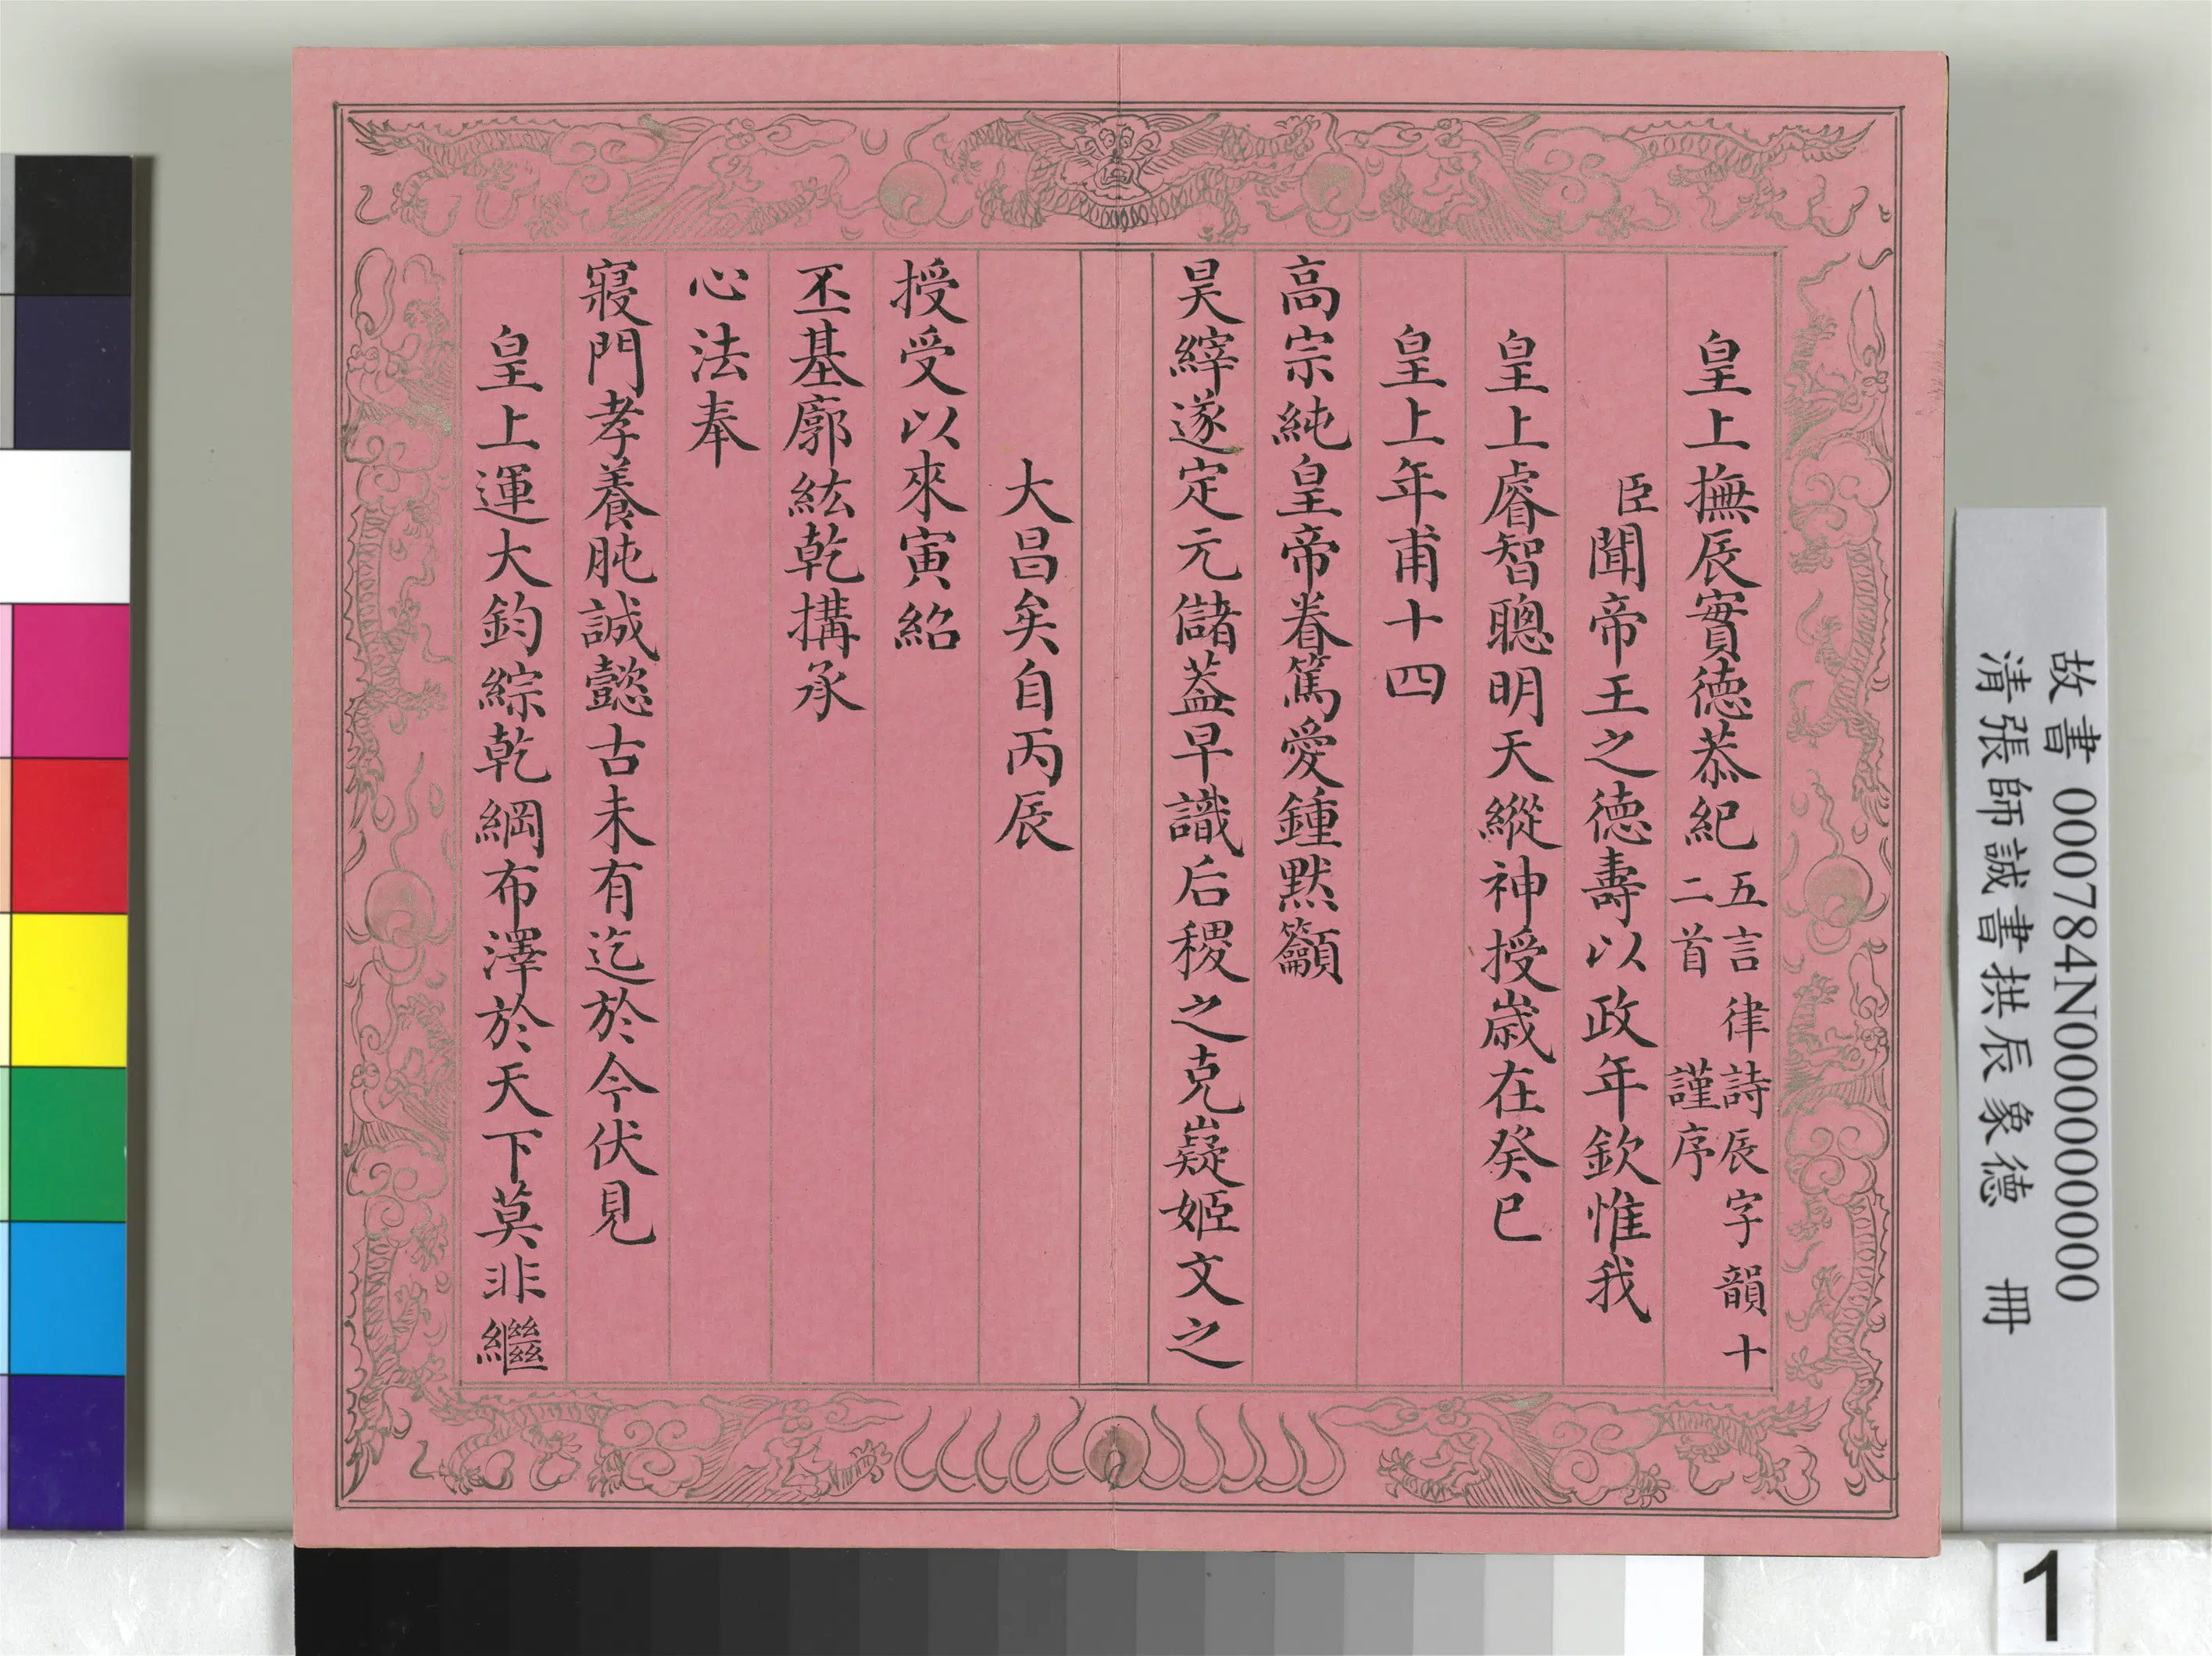 皇上撫辰實德恭紀五言律詩辰字韻十二首 謹序
臣聞帝王之德壽以政年欽惟我
皇上睿智聰明天縱神授歲在癸巳
皇上年甫十四
高宗純皇帝眷篤愛鍾默籲
昊縡遂定元儲葢早識后稷之克嶷姬文之
大昌矣自丙辰
授受以來寅紹
丕基廓紘乾構承
心法奉
寢門孝養肫誠懿古未有迄於今伏見
皇上運大鈞綜乾綱布澤於天下莫非繼
故書 000784N000000000
清張師誠書拱辰象德 冊
1